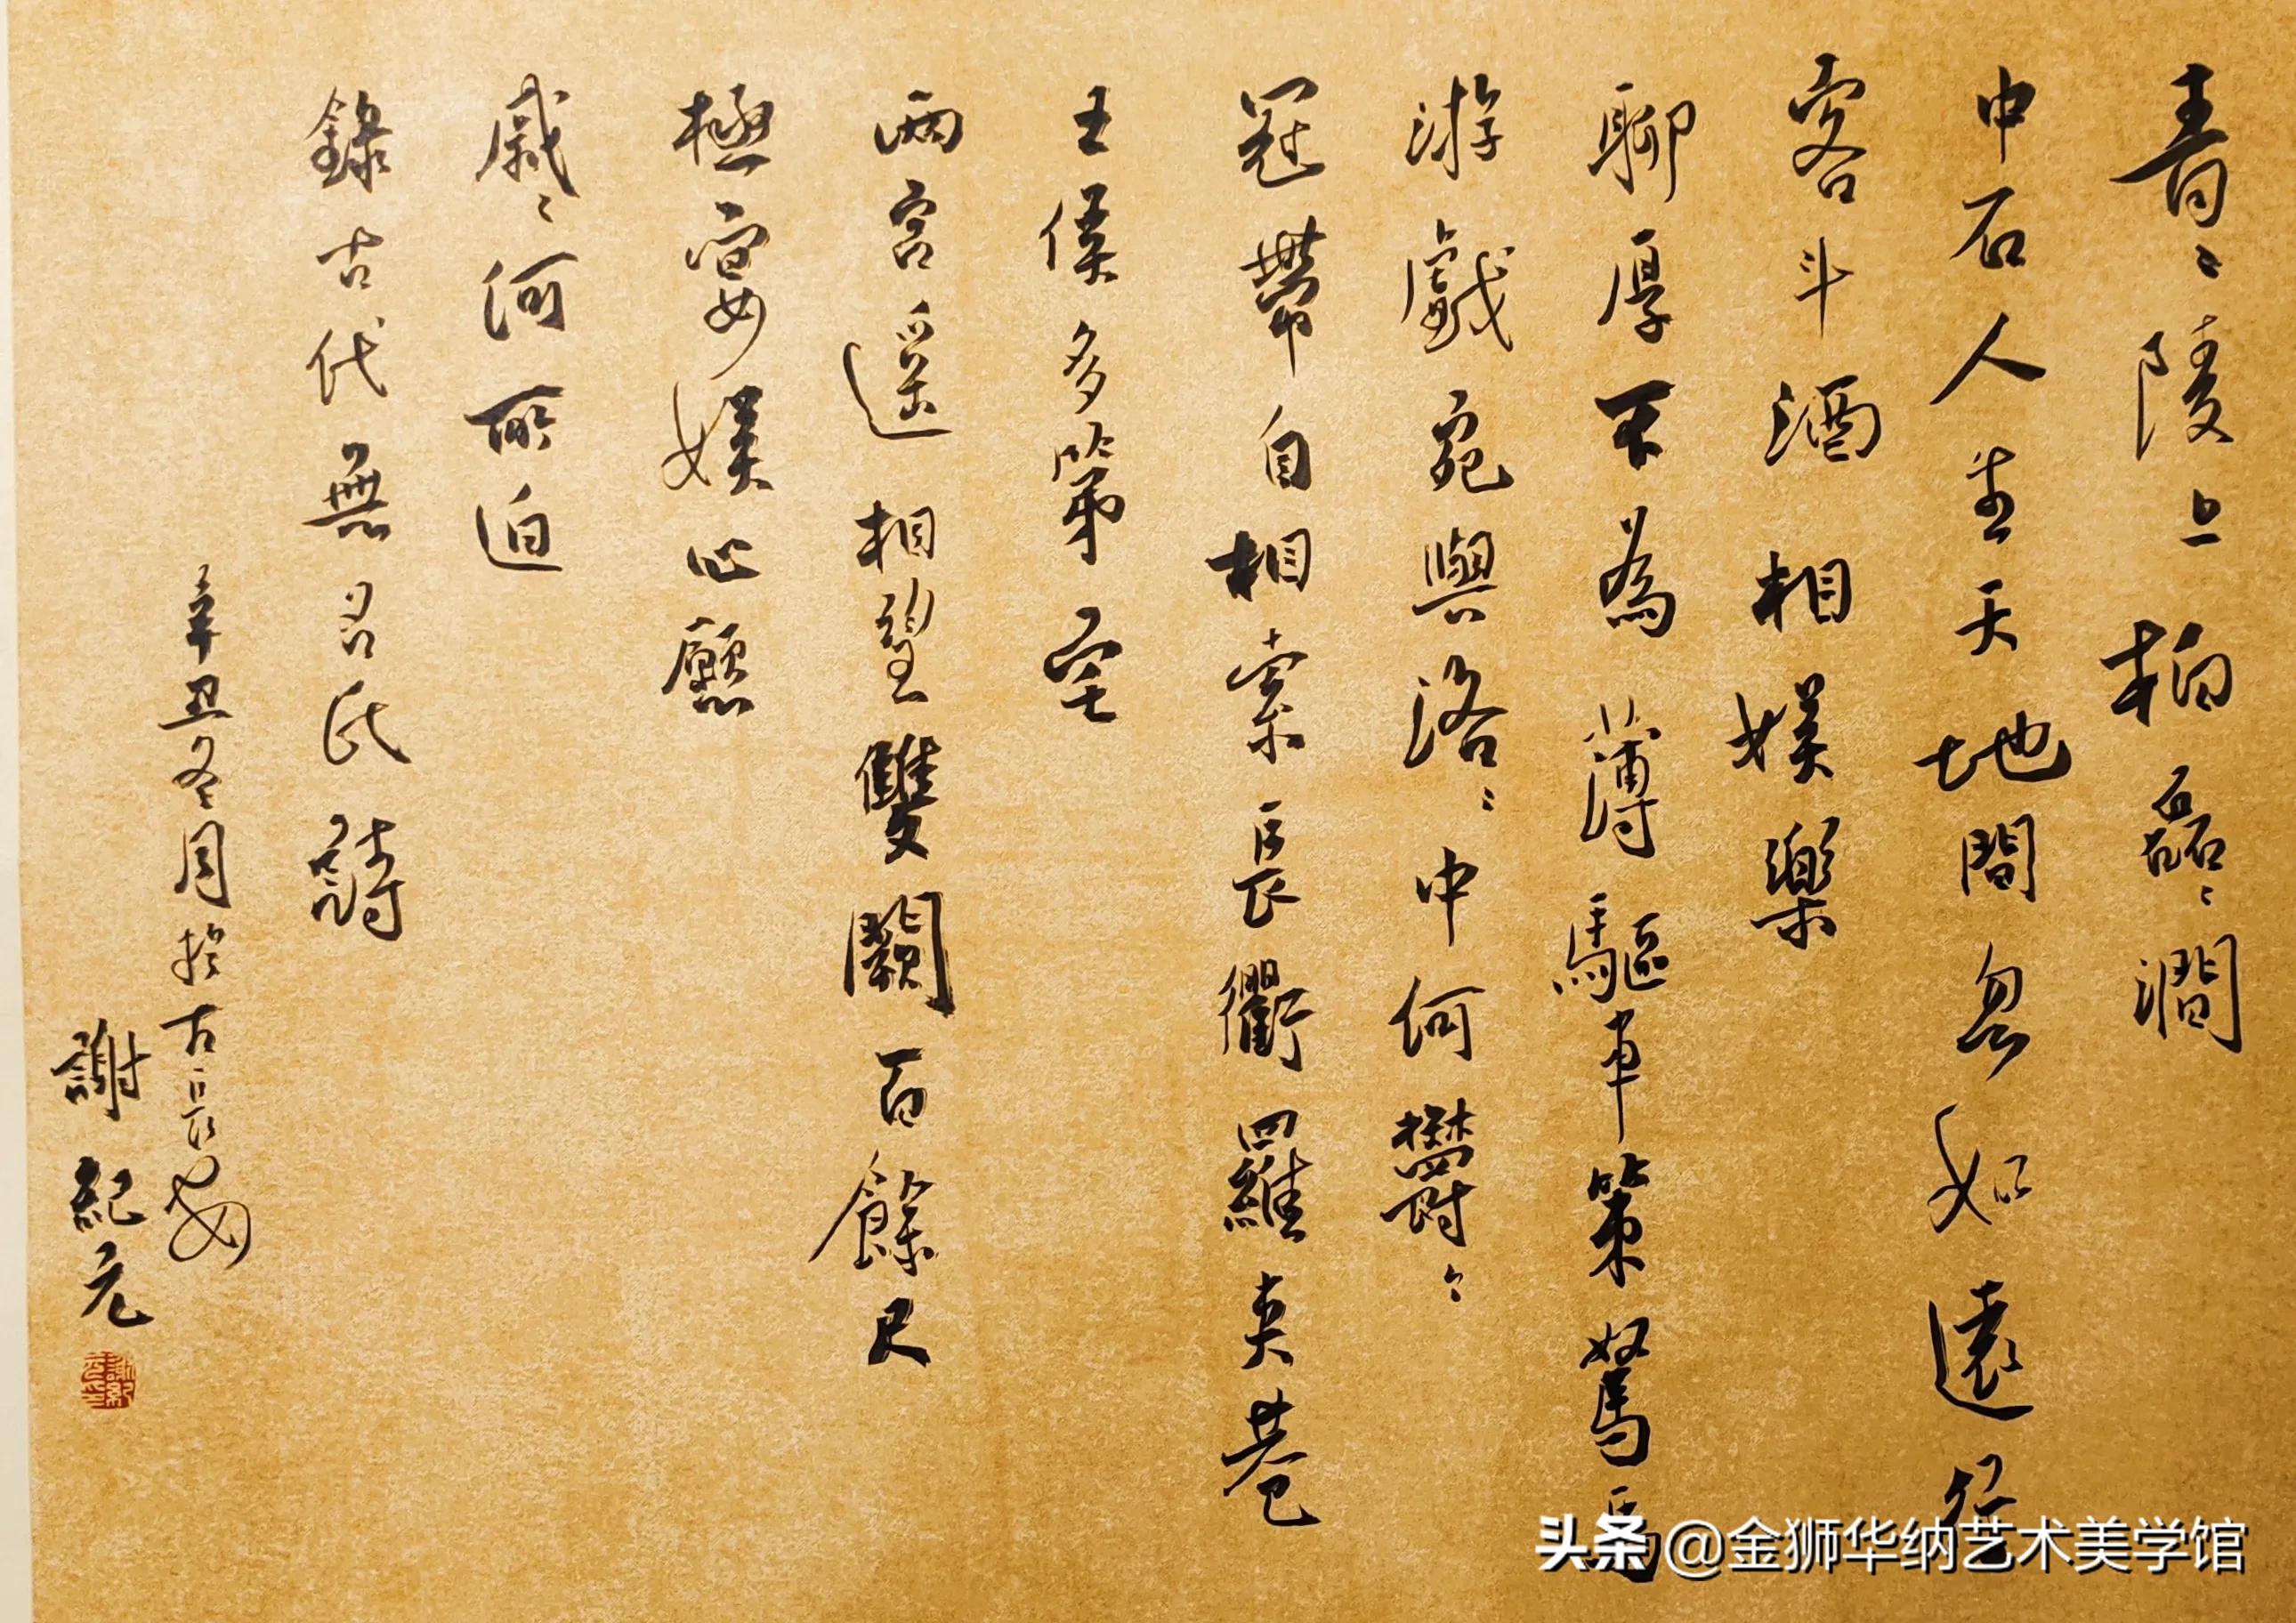 青〻陵上柏磊〻澗
中石人生天地間忽如遠行
客斗酒相娱樂
聊厚不為薄驅車策駑馬
游戲宛與洛〻中何鬱〻
冠帶自相索長衢羅夾巷
王侯多第宅
兩宮遥相望雙闕百餘尺
極宴娱心愿
戚〻何所迫
錄古代無名氏詩
辛丑冬月於古長安
謝紀元
头条@金狮华纳艺术美学馆